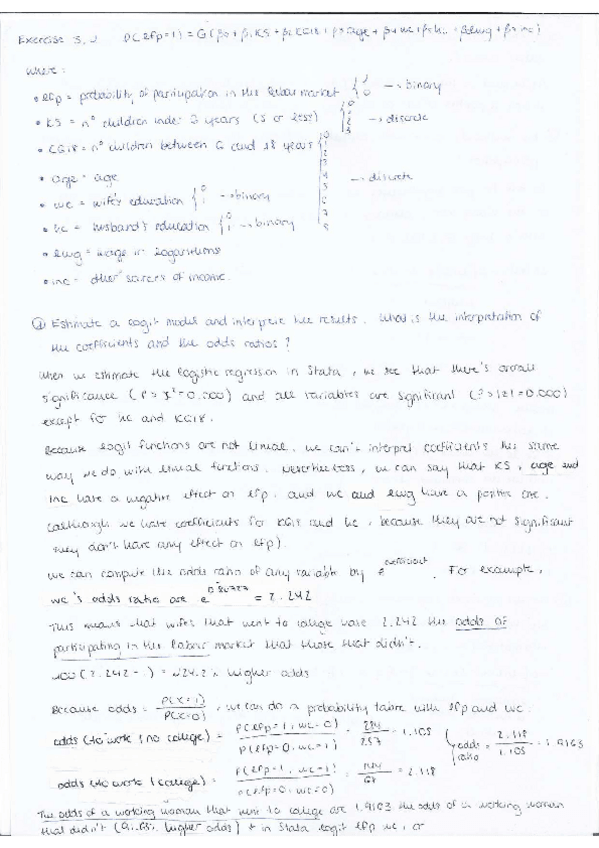 Exercise 3.
P(lfp=1) = G(β0 + β1 KS + β2 KG18 + β3 age + β4 wc + β5 h.. + β6 lwg + β7 inc)
where:
• lfp = probability of participation in the labour market { 1 0 → binary
• KS = nº children under 6 years (5 or less) { 0 1 2 3 → discrete
• KG18 = nº children between 6 and 18 years { 0 1 2 3 4 5 6 7 8 → discrete
• age = age
• wc = wife's education { 0 1 → binary
• hc = husband's education { 0 1 → binary
• lwg = wage in logarithms
• inc = other sources of income.
a) Estimate a logit model and interpret the results. What is the interpretation of
the coefficients and the odds ratios?
When we estimate the logistic regression in Stata, we see that there's overall
significance (P > χ² = 0.000) and all variables are significant (P>|z| = 0.000)
except for hc and KG18.
Because logit functions are not lineal, we can't interpret coefficients the same
way we do with lineal functions. Nevertheless, we can say that KS, age and
inc have a negative effect on lfp, and wc and lwg have a positive one.
(although we have coefficients for KG18 and hc, because they are not significant
they don't have any effect on lfp).
We can compute the odds ratio of any variable by e^coefficient. For example,
wc's odds ratio are e^0.80727 = 2.242
This means that wifes that went to college have 2.242 the odds of
participating in the labour market that those that didn't.
100(2.242 - 1) = 124.2% higher odds
Because odds = P(X=1) / P(X=0), we can do a probability table with lfp and wc.
odds (to work | no college) = P(lfp=1, wc=0) / P(lfp=0, wc=1) = 284 / 257 = 1.105
odds (to work | college) = P(lfp=1, wc=1) / P(lfp=0, wc=0) = 144 / 68 = 2.118
{ odds ratio = 2.118 / 1.105 = 1.9163
The odds of a working woman that went to college are 1.9163 the odds of a working woman
that didn't ( higher odds) in Stata logit lfp wc, or